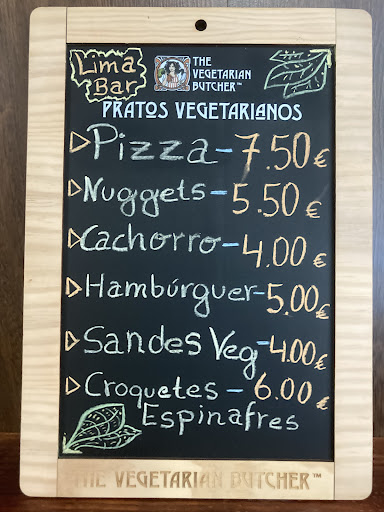 Lima
Bar
THE
VEGETARIAN
BUTCHER™
PRATOS VEGETARIANOS
Pizza - 7.50€
Nuggets - 5.50€
Cachorro - 4.00€
Hambúrguer - 5.00€
Sandes Veg - 4.00€
Croquetes - 6.00€
Espinafres
THE VEGETARIAN BUTCHER™